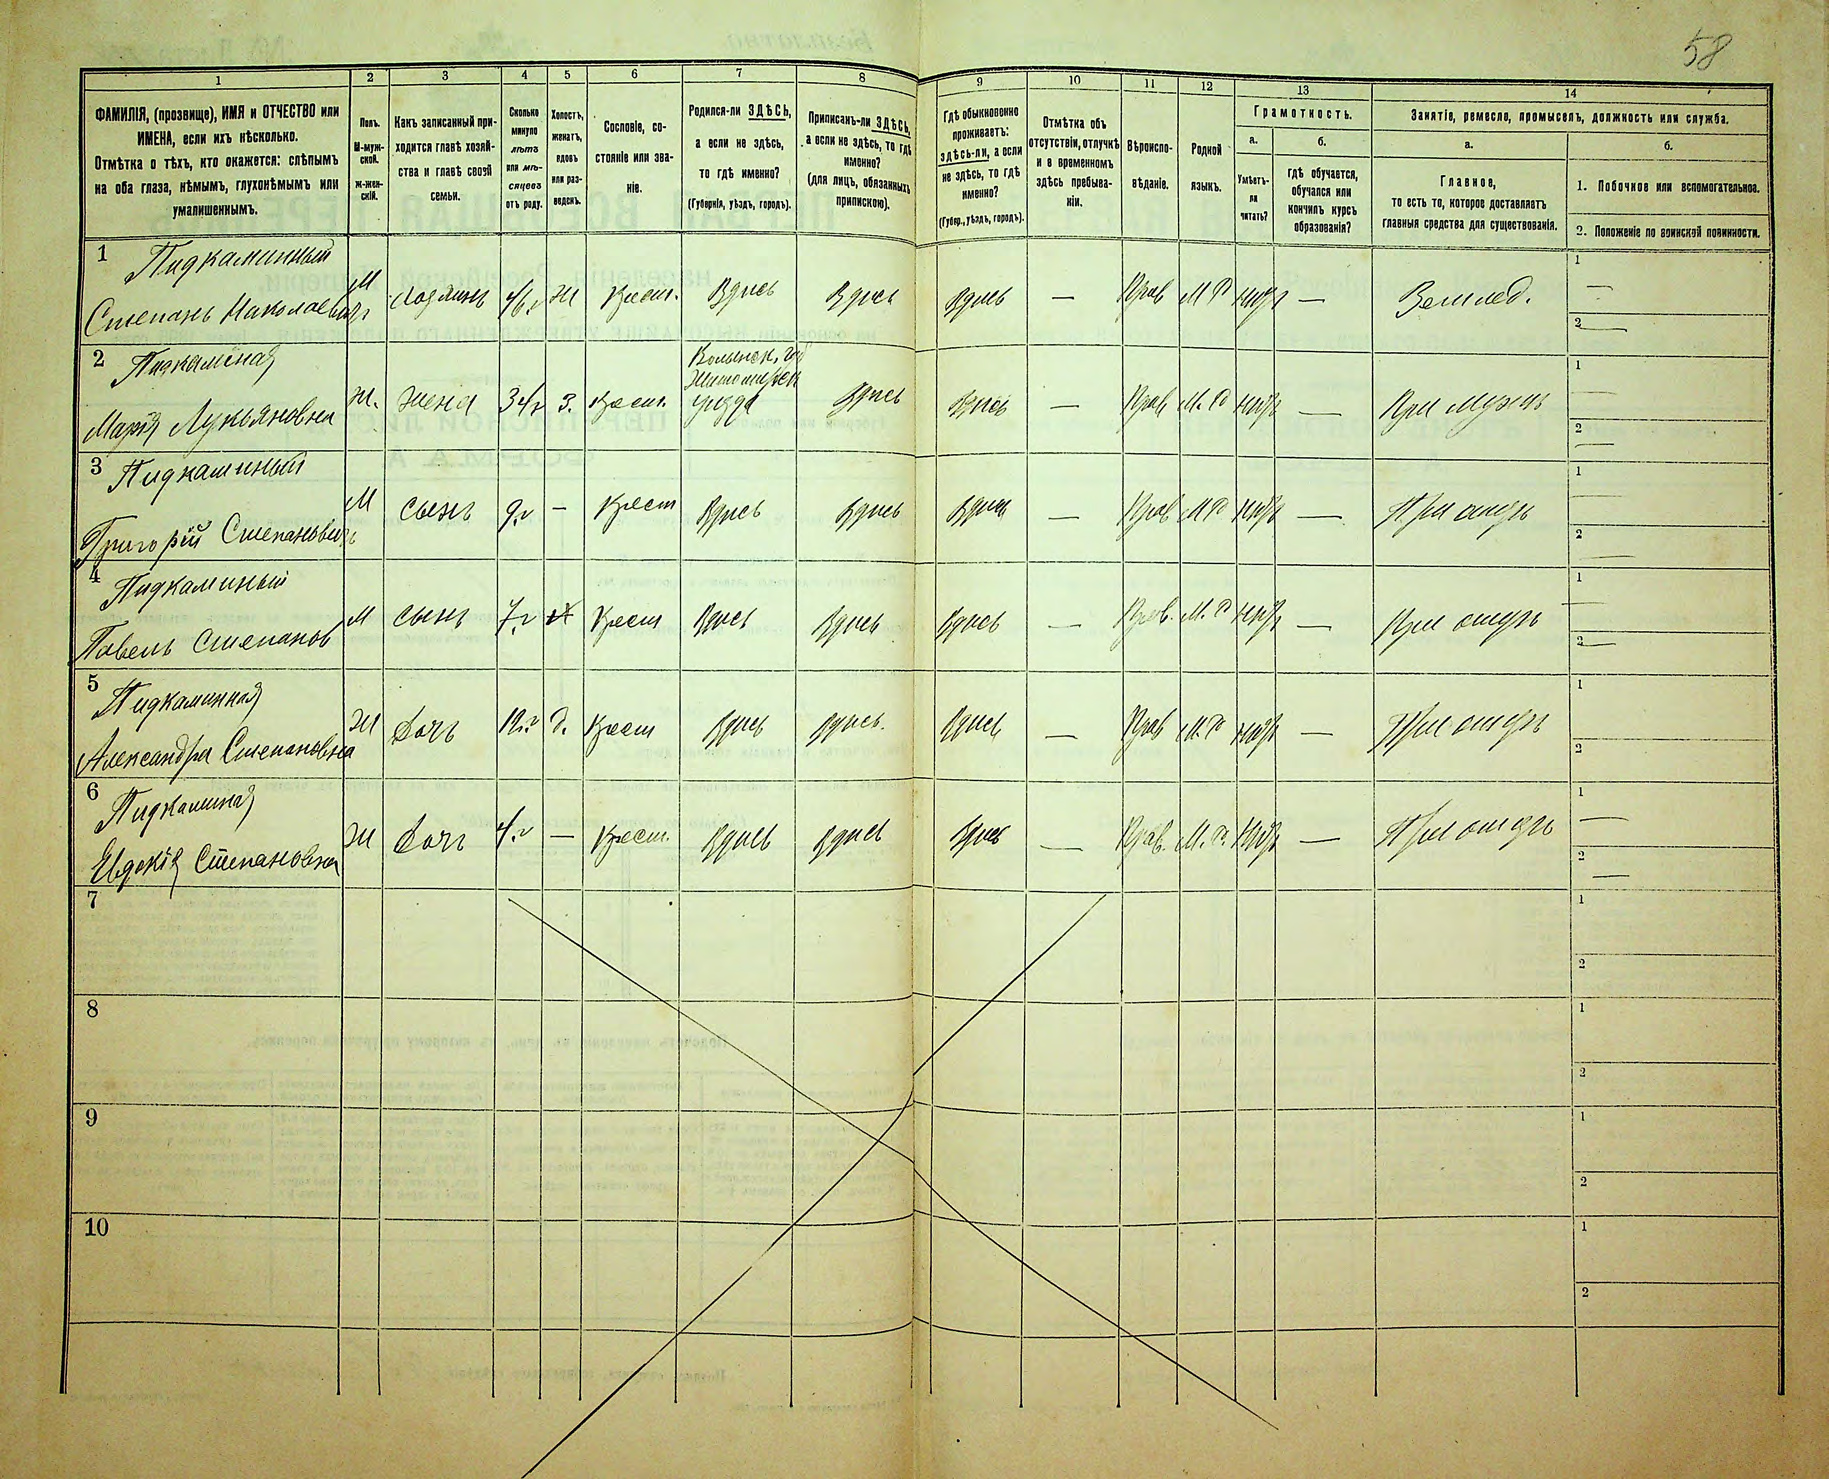 58
1 2 3 4 5 6 7 8 9 10 11 12 13 14
ФАМИЛІЯ, (прозвище), ИМЯ и ОТЧЕСТВО или
ИМЕНА, если ихъ нѣсколько.
Отмѣтка о тѣхъ, кто окажется: слѣпымъ
на оба глаза, нѣмымъ, глухонѣмымъ или
умалишеннымъ.
Полъ.
М-муж-
ской.
Ж-жен-
скій.
Какъ записанный при-
ходится главѣ хозяй-
ства и главѣ своей
семьи.
Сколько
минуло
лѣтъ
или мѣ-
сяцевъ
отъ роду.
Холостъ,
женатъ,
вдовъ
или раз-
веденъ.
Сословіе, со-
стояніе или зва-
ніе.
Родился-ли ЗДѢСЬ,
а если не здѣсь,
то гдѣ именно?
(Губернія, уѣздъ, городъ).
Приписанъ-ли ЗДѢСЬ,
а если не здѣсь, то гдѣ
именно?
(для лицъ, обязанныхъ
припискою).
Гдѣ обыкновенно
проживаетъ:
здѣсь-ли, а если
не здѣсь, то гдѣ
именно?
(Губер., уѣздъ, городъ).
Отмѣтка объ
отсутствіи, отлучкѣ
и о временномъ
здѣсь пребыва-
ніи.
Вѣроиспо-
вѣданіе.
Родной
языкъ.
Грамотность.
а.
Умѣетъ-
ли
читать?
б.
гдѣ обучается,
обучался или
кончилъ курсъ
образованія?
Занятіе, ремесло, промыселъ, должность или служба.
а.
Главное,
то есть то, которое доставляетъ
главныя средства для существованія.
б.
1. Побочное или вспомогательное.
2. Положеніе по воинской повинности.
1 Пидкаминный
Степанъ Николаевичъ М хозяинъ Ж Крест. Здѣсь Здѣсь Здѣсь — Прав М Р нѣтъ — Землед. 1 — 2 —
2 Пидкаменая Волынск. губ
Житомирск
Марія Лукьяновна Ж. жена 34 г З. Крест. уѣзда Здѣсь Здѣсь — Прав М. Р нѣтъ — При мужѣ 1 — 2 —
3 Пидкаминый
Григорій Степановичъ М сынъ 9 г — Крест Здѣсь Здѣсь Здѣсь — Прав М Р нѣтъ — При отцѣ 1 — 2 —
4 Пидкаминый
Павелъ Степанов М сынъ 7 г Крест Здѣсь Здѣсь Здѣсь — Прав. М. Р нѣтъ — При отцѣ 1 — 2 —
5 Пидкаминная
Александра Степановна Ж дочь 12 г д. Крест Здѣсь Здѣсь. Здѣсь — Прав М. Р нѣтъ — При отцѣ 1 2
6 Пидкаминая
Евдокія Степановна Ж дочь 4 г — Крест. Здѣсь Здѣсь Здѣсь — Прав. М. Р. нѣтъ — При отцѣ 1 — 2 —
7 1 2
8 1 2
9 1 2
10 1 2